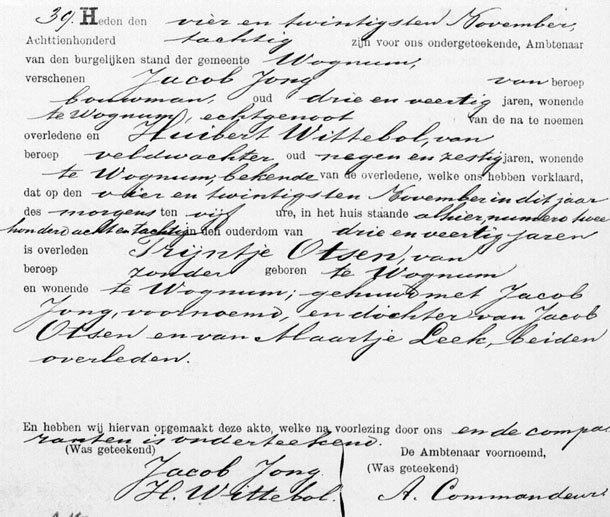 39. Heden den vier en twintigsten November,
Achttienhonderd tachtig zijn voor ons ondergeteekende, Ambtenaar
van den burgelijken stand der gemeente Wognum,
verschenen Jacob Jong van beroep
bouwman, oud drie en veertig jaren, wonende
te Wognum, echtgenoot van de na te noemen
overledene en Huibert Wittebol, van
beroep veldwachter oud negen en zestig jaren, wonende
te Wognum, bekende van de overledene, welke ons hebben verklaard,
dat op den vier en twintigsten November in dit jaar
des morgens ten vijf ure, in het huis staande alhier, numero twee
honderd acht en tachtig in den ouderdom van drie en veertig jaren
is overleden Trijntje Otsen, van
beroep zonder geboren te Wognum
en wonende te Wognum; gehuwd met Jacob
Jong, voornoemd, en dochter van Jacob
Otsen en van Maartje Leek, beiden
overleden.
En hebben wij hiervan opgemaakt deze akte, welke na voorlezing door ons en de compa-
ranten is onderteekend.
(Was geteekend) De Ambtenaar voornoemd,
Jacob Jong (Was geteekend)
H. Wittebol. A. Commandeur